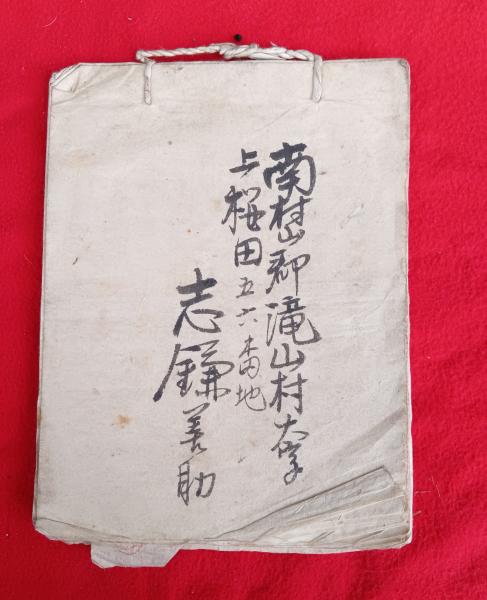 南村山郡滝山村大字
上桜田五六番地
志鎌善助